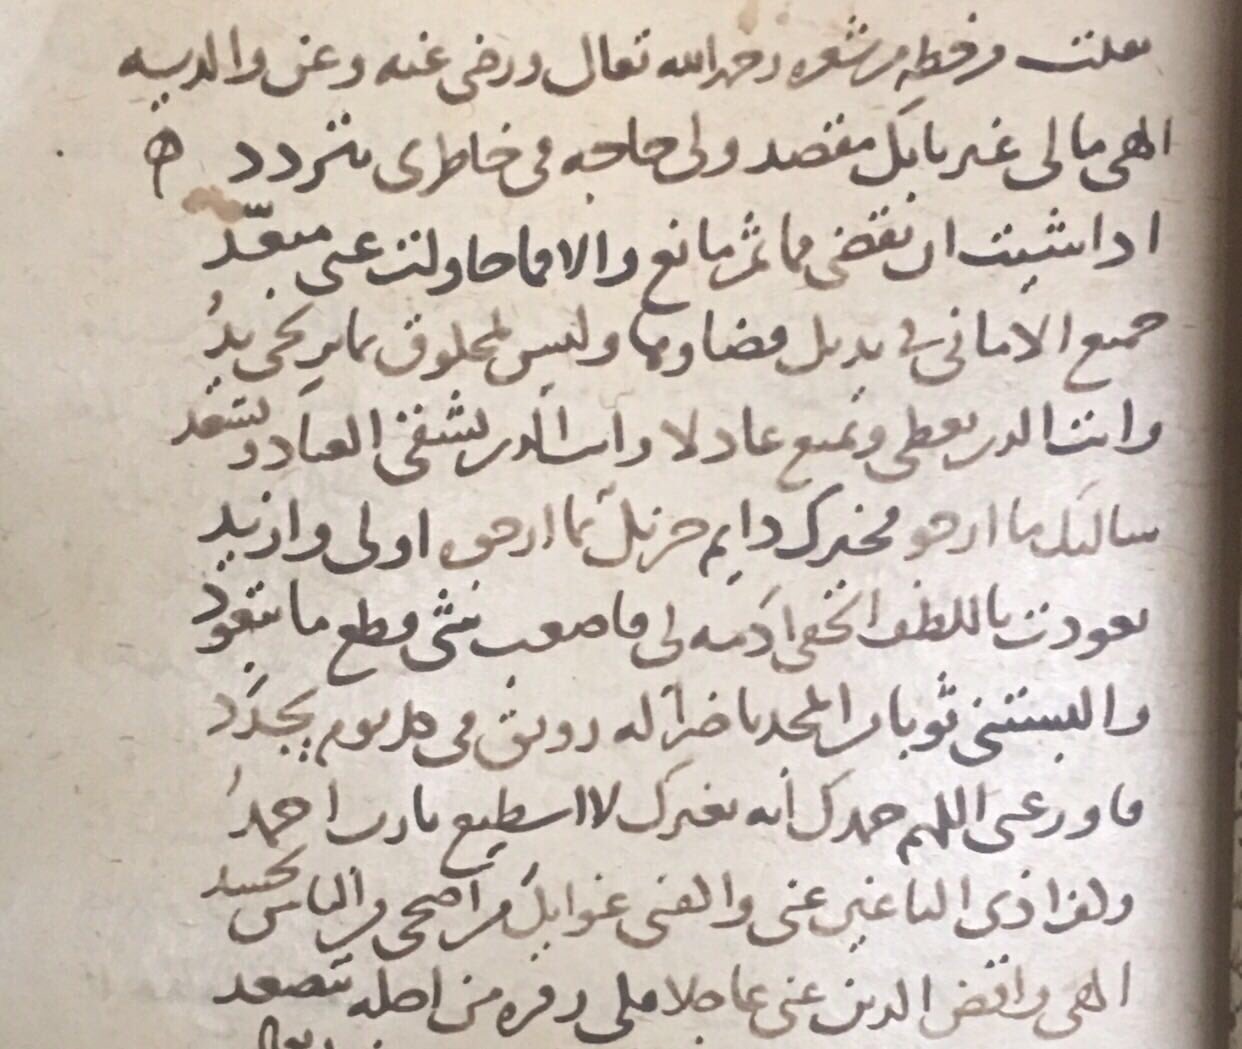 نقلت من خطه من شعره رحمه الله تعالى ورضي عنه وعن والديه
الهي ما لي غير بابك مقصد ولي حاجه في خاطري تتردد
اذا شيت ان تقضى فما ثم مانع والا فما حاولت عني مبعد
جميع الاماني في يديك قضاوها وليس لمخلوق بما يرتجى يد
وانت الذي يعطي ويمنع عادلا وانت الذي يشقي العباد ويسعد
سالتك ما ارجو فخيرك دايم جزيل بما ارجوه اولى وازيد
تعودت باللطف الخفي ادمه لي فاصعب شي قطع ما يتعود
والبستني ثوبا من المجد ناضرا له رونق في كل يوم يجدد
فاوزعني اللهم حمدك انه بغيرك لا اسطيع يا رب احمد
اذى الباغين عني والقني غوايل من اضحى من الناس يحسد
الهي واقض الدين عني عاجلا فلي زفره من اجله تتصعد